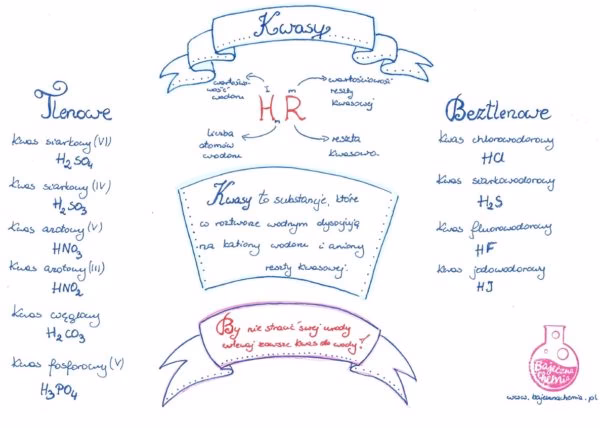 Kwasy
wartościo-
wość
wodoru
I
m
wartościowość
reszty
kwasowej
HR
m
liczba
atomów
wodoru
reszta
kwasowa
Tlenowe
Kwas siarkowy (VI)
H₂SO₄
Kwas siarkowy (IV)
H₂SO₃
Kwas azotowy (V)
HNO₃
Kwas azotowy (III)
HNO₂
Kwas węglowy
H₂CO₃
Kwas fosforowy (V)
H₃PO₄
Kwasy to substancje, które
w roztworze wodnym dysocjują
na kationy wodoru i aniony
reszty kwasowej.
By nie stracić swej urody
wlewaj zawsze kwas do wody!
Beztlenowe
Kwas chlorowodorowy
HCl
Kwas siarkowodorowy
H₂S
Kwas fluorowodorowy
HF
Kwas jodowodorowy
HJ
Bajeczna
Chemia
www.bajecznachemia.pl